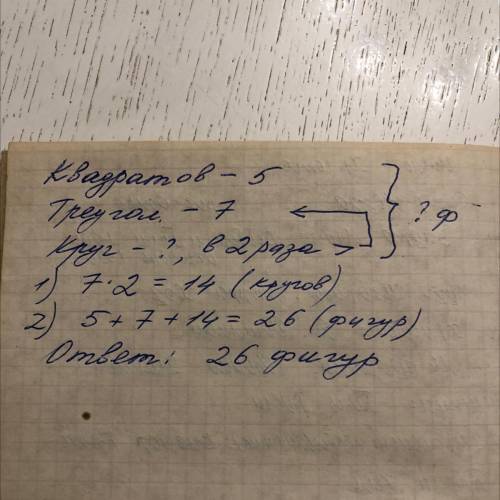 Квадратов - 5
Треугол. - 7
Круг - ?, в 2 раза >
? ф
1) 7·2 = 14 (кругов)
2) 5+7+14 = 26 (фигур)
Ответ: 26 фигур